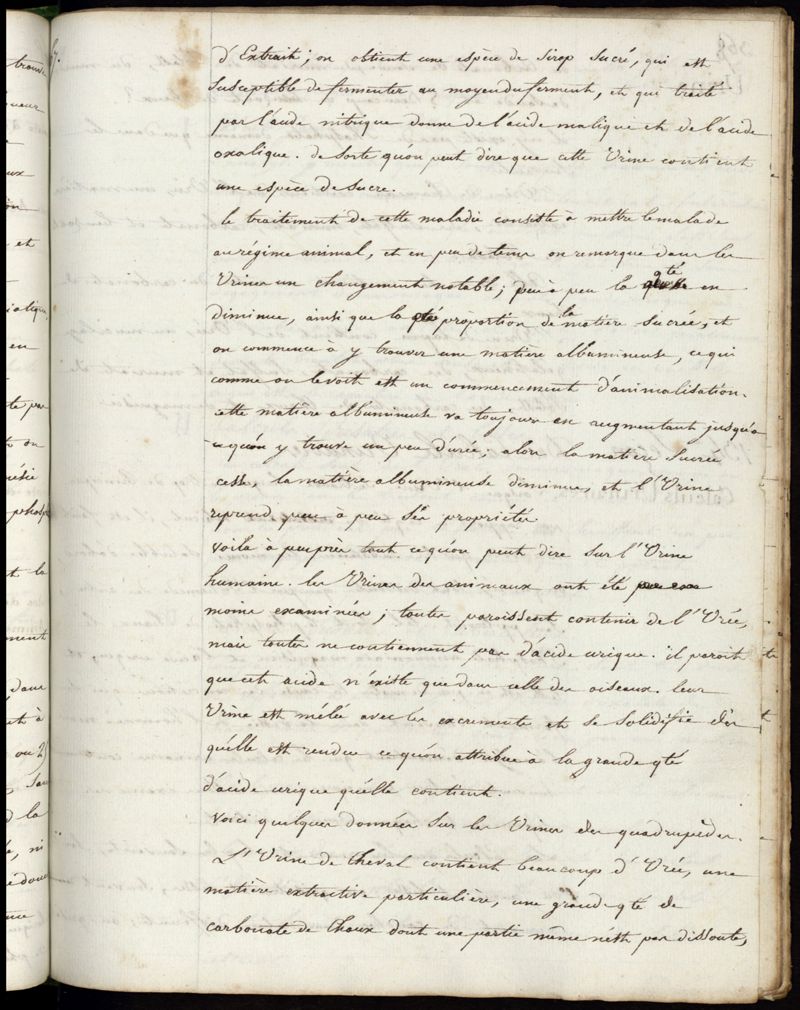 d'Extrait; on obtient une espèce de sirop sucré, qui est
susceptible de fermenter au moyen du ferment, et qui traité
par l'acide nitrique donne de l'acide malique et de l'acide
oxalique. de sorte qu'on peut dire que cette Urine contient
une espèce de sucre.
le traitement de cette maladie consiste à mettre le malade
au régime animal, et en peu de tems on remarque dans les
Urines un changement notable; peu à peu la qté en
diminue, ainsi que la proportion de la matière sucrée, et
on commence à y trouver une matière albumineuse, ce qui
comme on le voit est un commencement d'animalisation.
cette matière albumineuse va toujours en augmentant jusqu'à
ce qu'on y trouve un peu d'urée; alors la matière sucrée
cesse, la matière albumineuse diminue, et l'Urine
reprend peu à peu ses propriétés
voilà à peu près tout ce qu'on peut dire sur l'Urine
humaine. les Urines des animaux ont été
moins examinées; toutes paroissent contenir de l'Urée,
mais toutes ne contiennent pas d'acide urique. il paroit
que cet acide n'existe que dans celle des oiseaux. leur
Urine est mêlée avec les excréments et se solidifie dès
qu'elle est rendue ce qu'on attribue à la grande qté
d'acide urique qu'elle contient.
voici quelques données sur les Urines des quadrupèdes.
L'Urine de cheval contient beaucoup d'Urée, une
matière extractive particulière, une grande qté de
carbonate de chaux dont une partie même n'est pas dissoute,